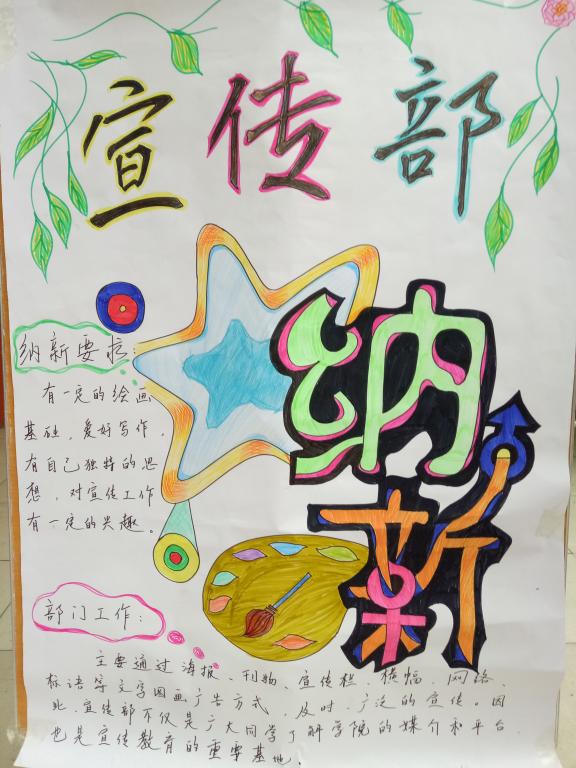 宣传部
纳新
纳新要求:
有一定的绘画
基础,爱好写作,
有自己独特的思
想,对宣传工作
有一定的兴趣。
部门工作:
主要通过海报、刊物、宣传栏、横幅、网络、
标语等文字图画广告方式,及时、广泛的宣传。因
此,宣传部不仅是广大同学了解学院的媒介和平台,
也是宣传教育的重要基地。